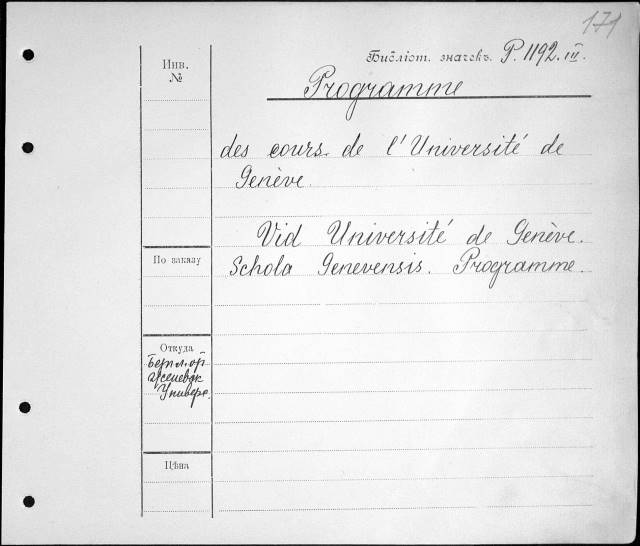 171
Библіот. значекъ. P. 1192. III.
Programme
des cours de l'Université de
Genève.
Vid Université de Genève.
Schola Genevensis. Programme.
Инв.
№
По заказу
Откуда
Универс.
Цѣна